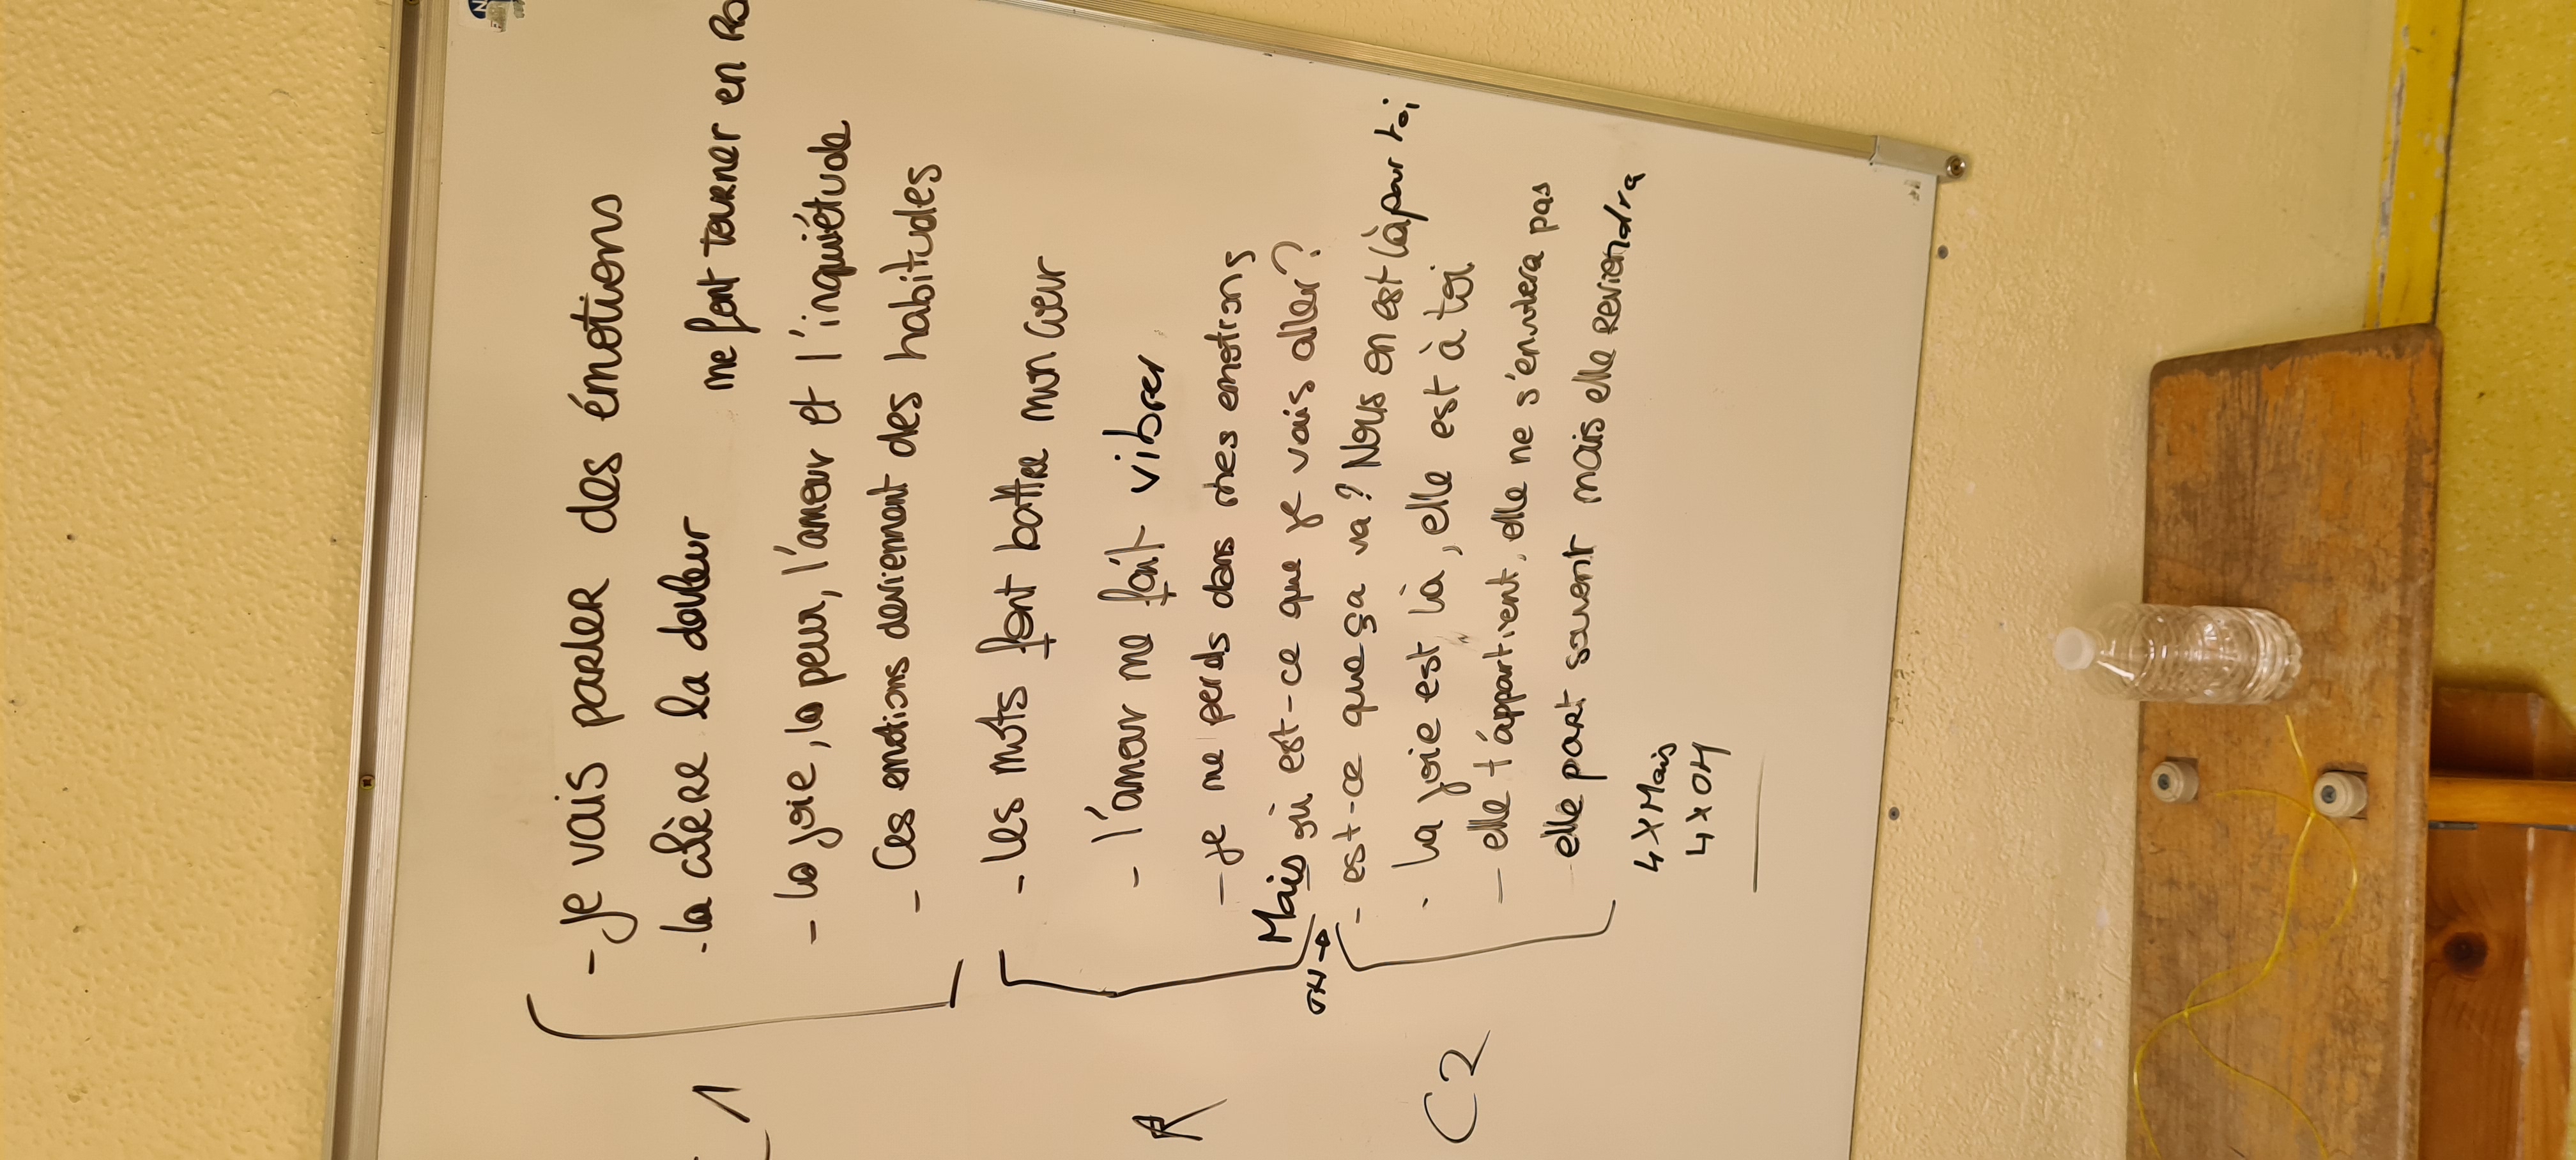 C1
- je vais parler des émotions
- la colère la douleur me font tourner en Ro
- la joie, la peur, l'amour et l'inquiétude
- Ces emotions deviennent des habitudes
R
- les mots font battre mon cœur
- l'amour me fait vibrer
- je me perds dans mes emotions
Mais où est-ce que je vais aller?
OH →
C2
- est-ce que ça va? Nous on est là pour toi
- la joie est là, elle est à toi
- elle t'appartient, elle ne s'envolera pas
- elle part souvent mais elle reviendra
4 X Mais
4 X OH